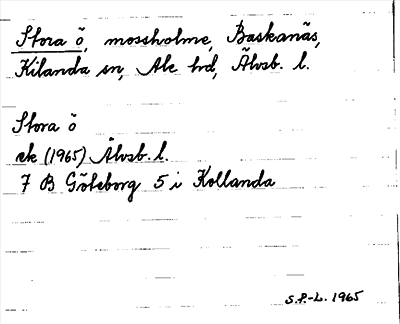 Stora ö, mossholme, Baskanäs,
Kilanda sn, Ale hd, Älvsb. l.
Stora ö
ek (1965) Älvsb. l.
7 B Göteborg 5 i Kollanda
S.P.-L. 1965